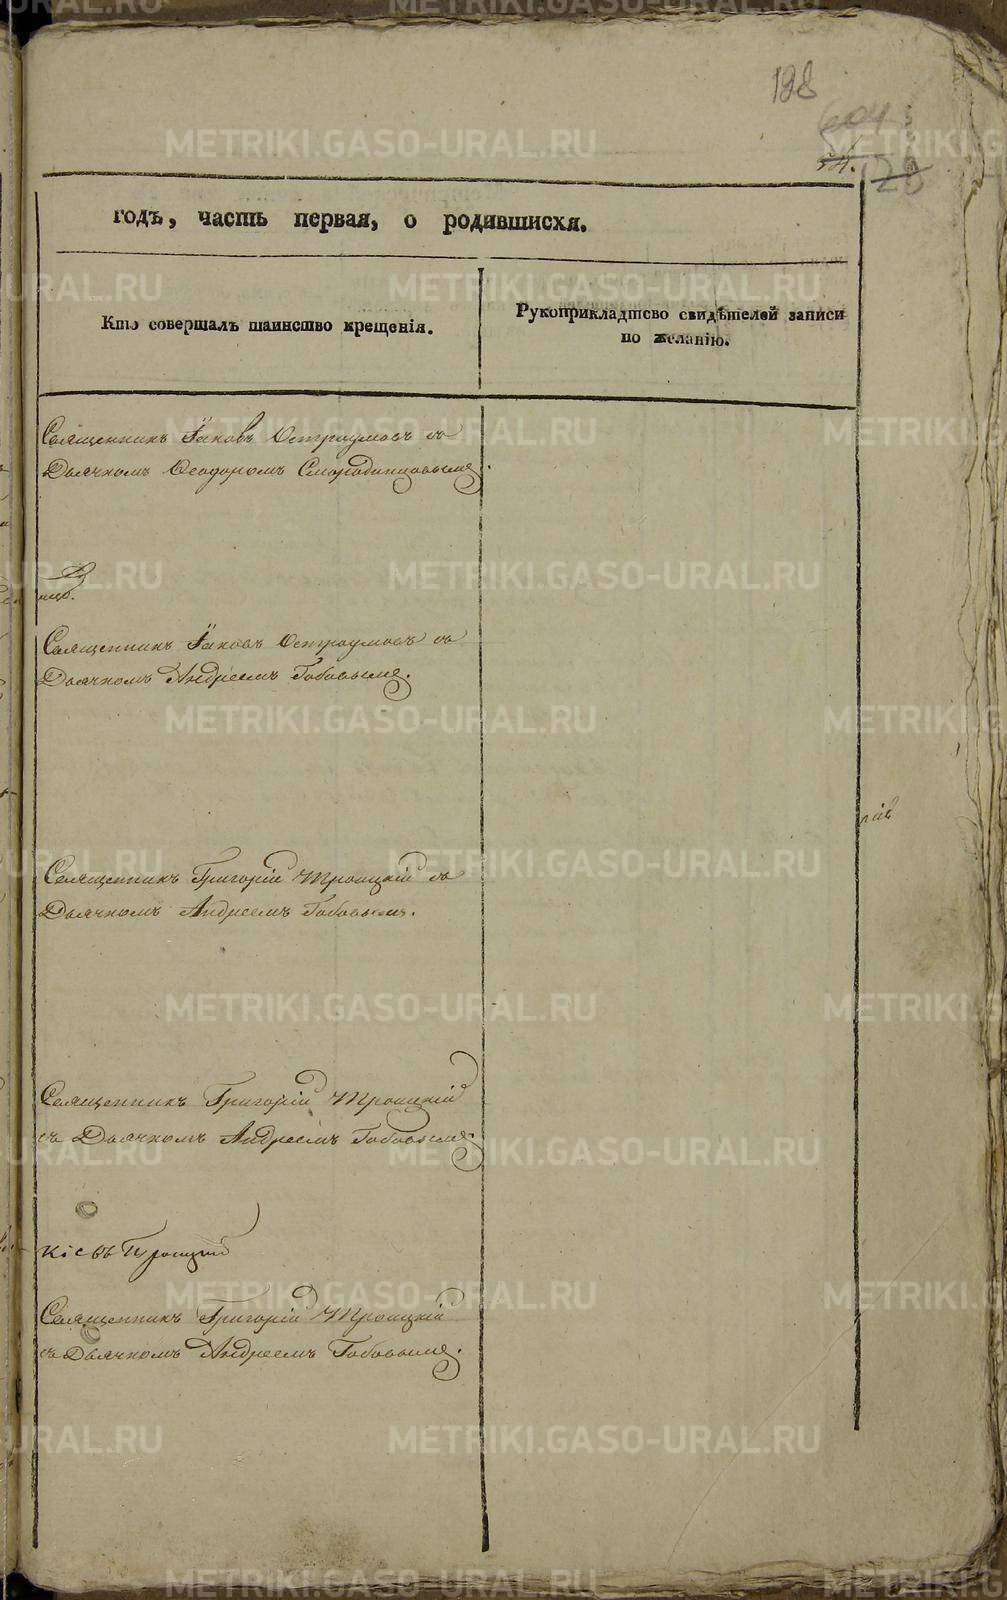 128
годъ, часть первая, о родившихся.
Кто совершалъ таинство крещенія.
Рукоприкладство свидѣтелей записи
по желанію.
Священникъ Іаковъ Остроумовъ съ
Дьячкомъ Ѳеодоромъ Смородинцовымъ.
Священникъ Іаковъ Остроумовъ съ
Дьячкомъ Андреемъ Бабовымъ.
Священникъ Григорій Троицкій съ
Дьячкомъ Андреемъ Бабовымъ.
Священникъ Григорій Троицкій
съ Дьячкомъ Андреемъ Бабовымъ.
Троицкій
Священникъ Григорій Троицкій
съ Дьячкомъ Андреемъ Бабовымъ.
METRIKI.GASO-URAL.RU